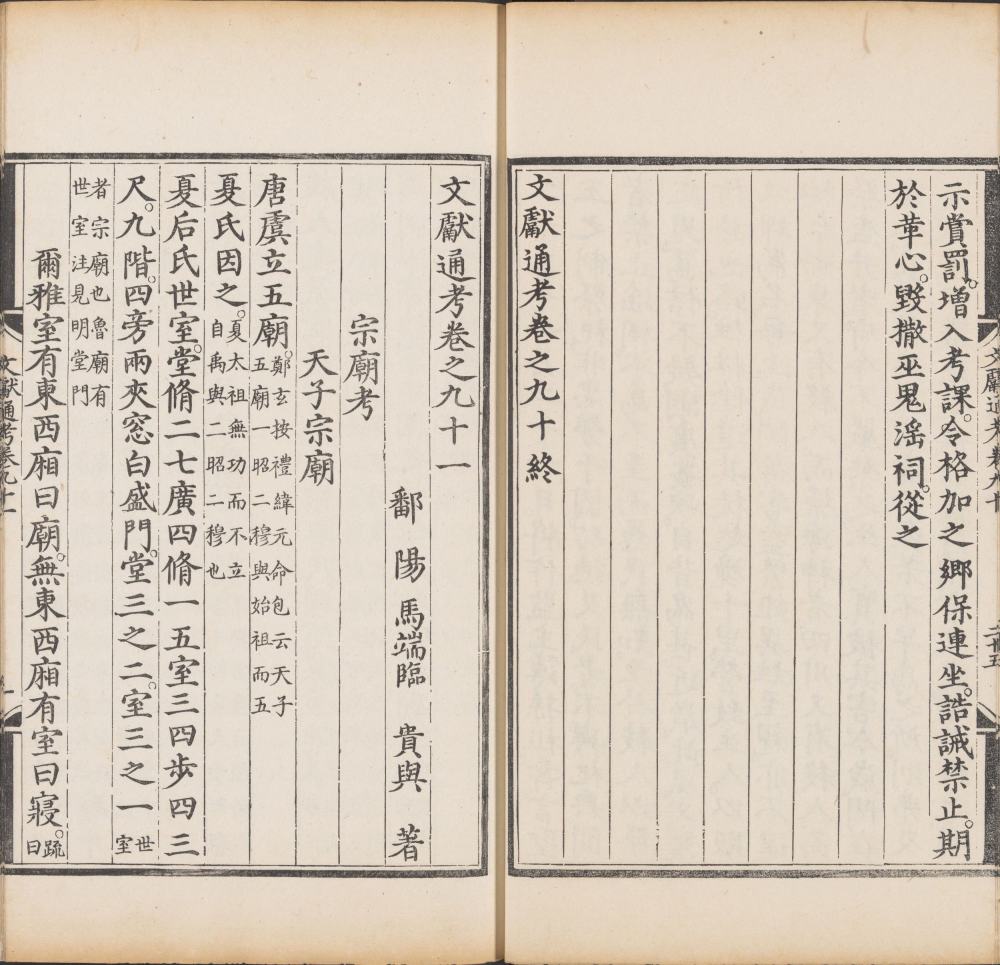 示賞罰。增入考課。令格加之鄉保連坐。誥誡禁止。期
於革心。毀撒巫鬼滛祠。從之
文獻通考卷之九十終
文獻通考卷之九十一
鄱陽馬端臨貴與著
宗廟考
天子宗廟
唐虞立五廟。鄭玄按禮緯元命包云天子
五廟一昭二穆與始祖而五
夏氏因之。夏太祖無功而不立
自禹與二昭二穆也
夏后氏世室。堂脩二七廣四脩一五室三四步四三
尺。九階。四旁兩夾窓白盛門。堂三之二。室三之一世
室
者宗廟也魯廟有
世室注見明堂門
爾雅室有東西廂曰廟。無東西廂有室曰寢。疏
曰
文獻通考卷九十一